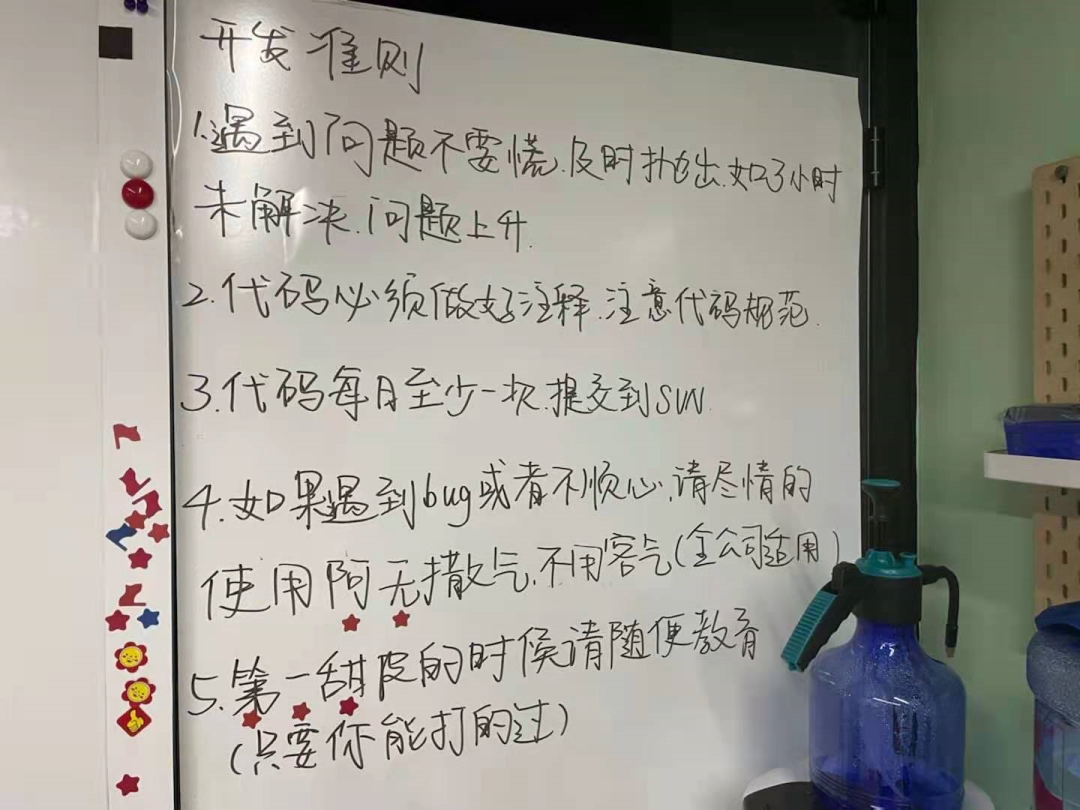 开发准则
1.遇到问题不要慌.及时抛出.如3小时
未解决.问题上升.
2.代码必须做好注释.注意代码规范.
3.代码每日至少一次.提交到SVN.
4.如果遇到bug或者不顺心.请尽情的
使用阿无撒气.不用客气(全公司适用)
5.第一甜皮的时候请随便教育
(只要你能打的过)